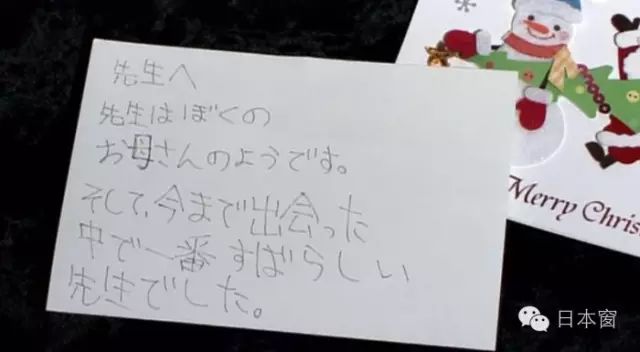 先生へ
先生はぼくの
お母さんのようです。
そして、今まで出会った
中で一番すばらしい
先生でした。
Merry Chris
日本窗